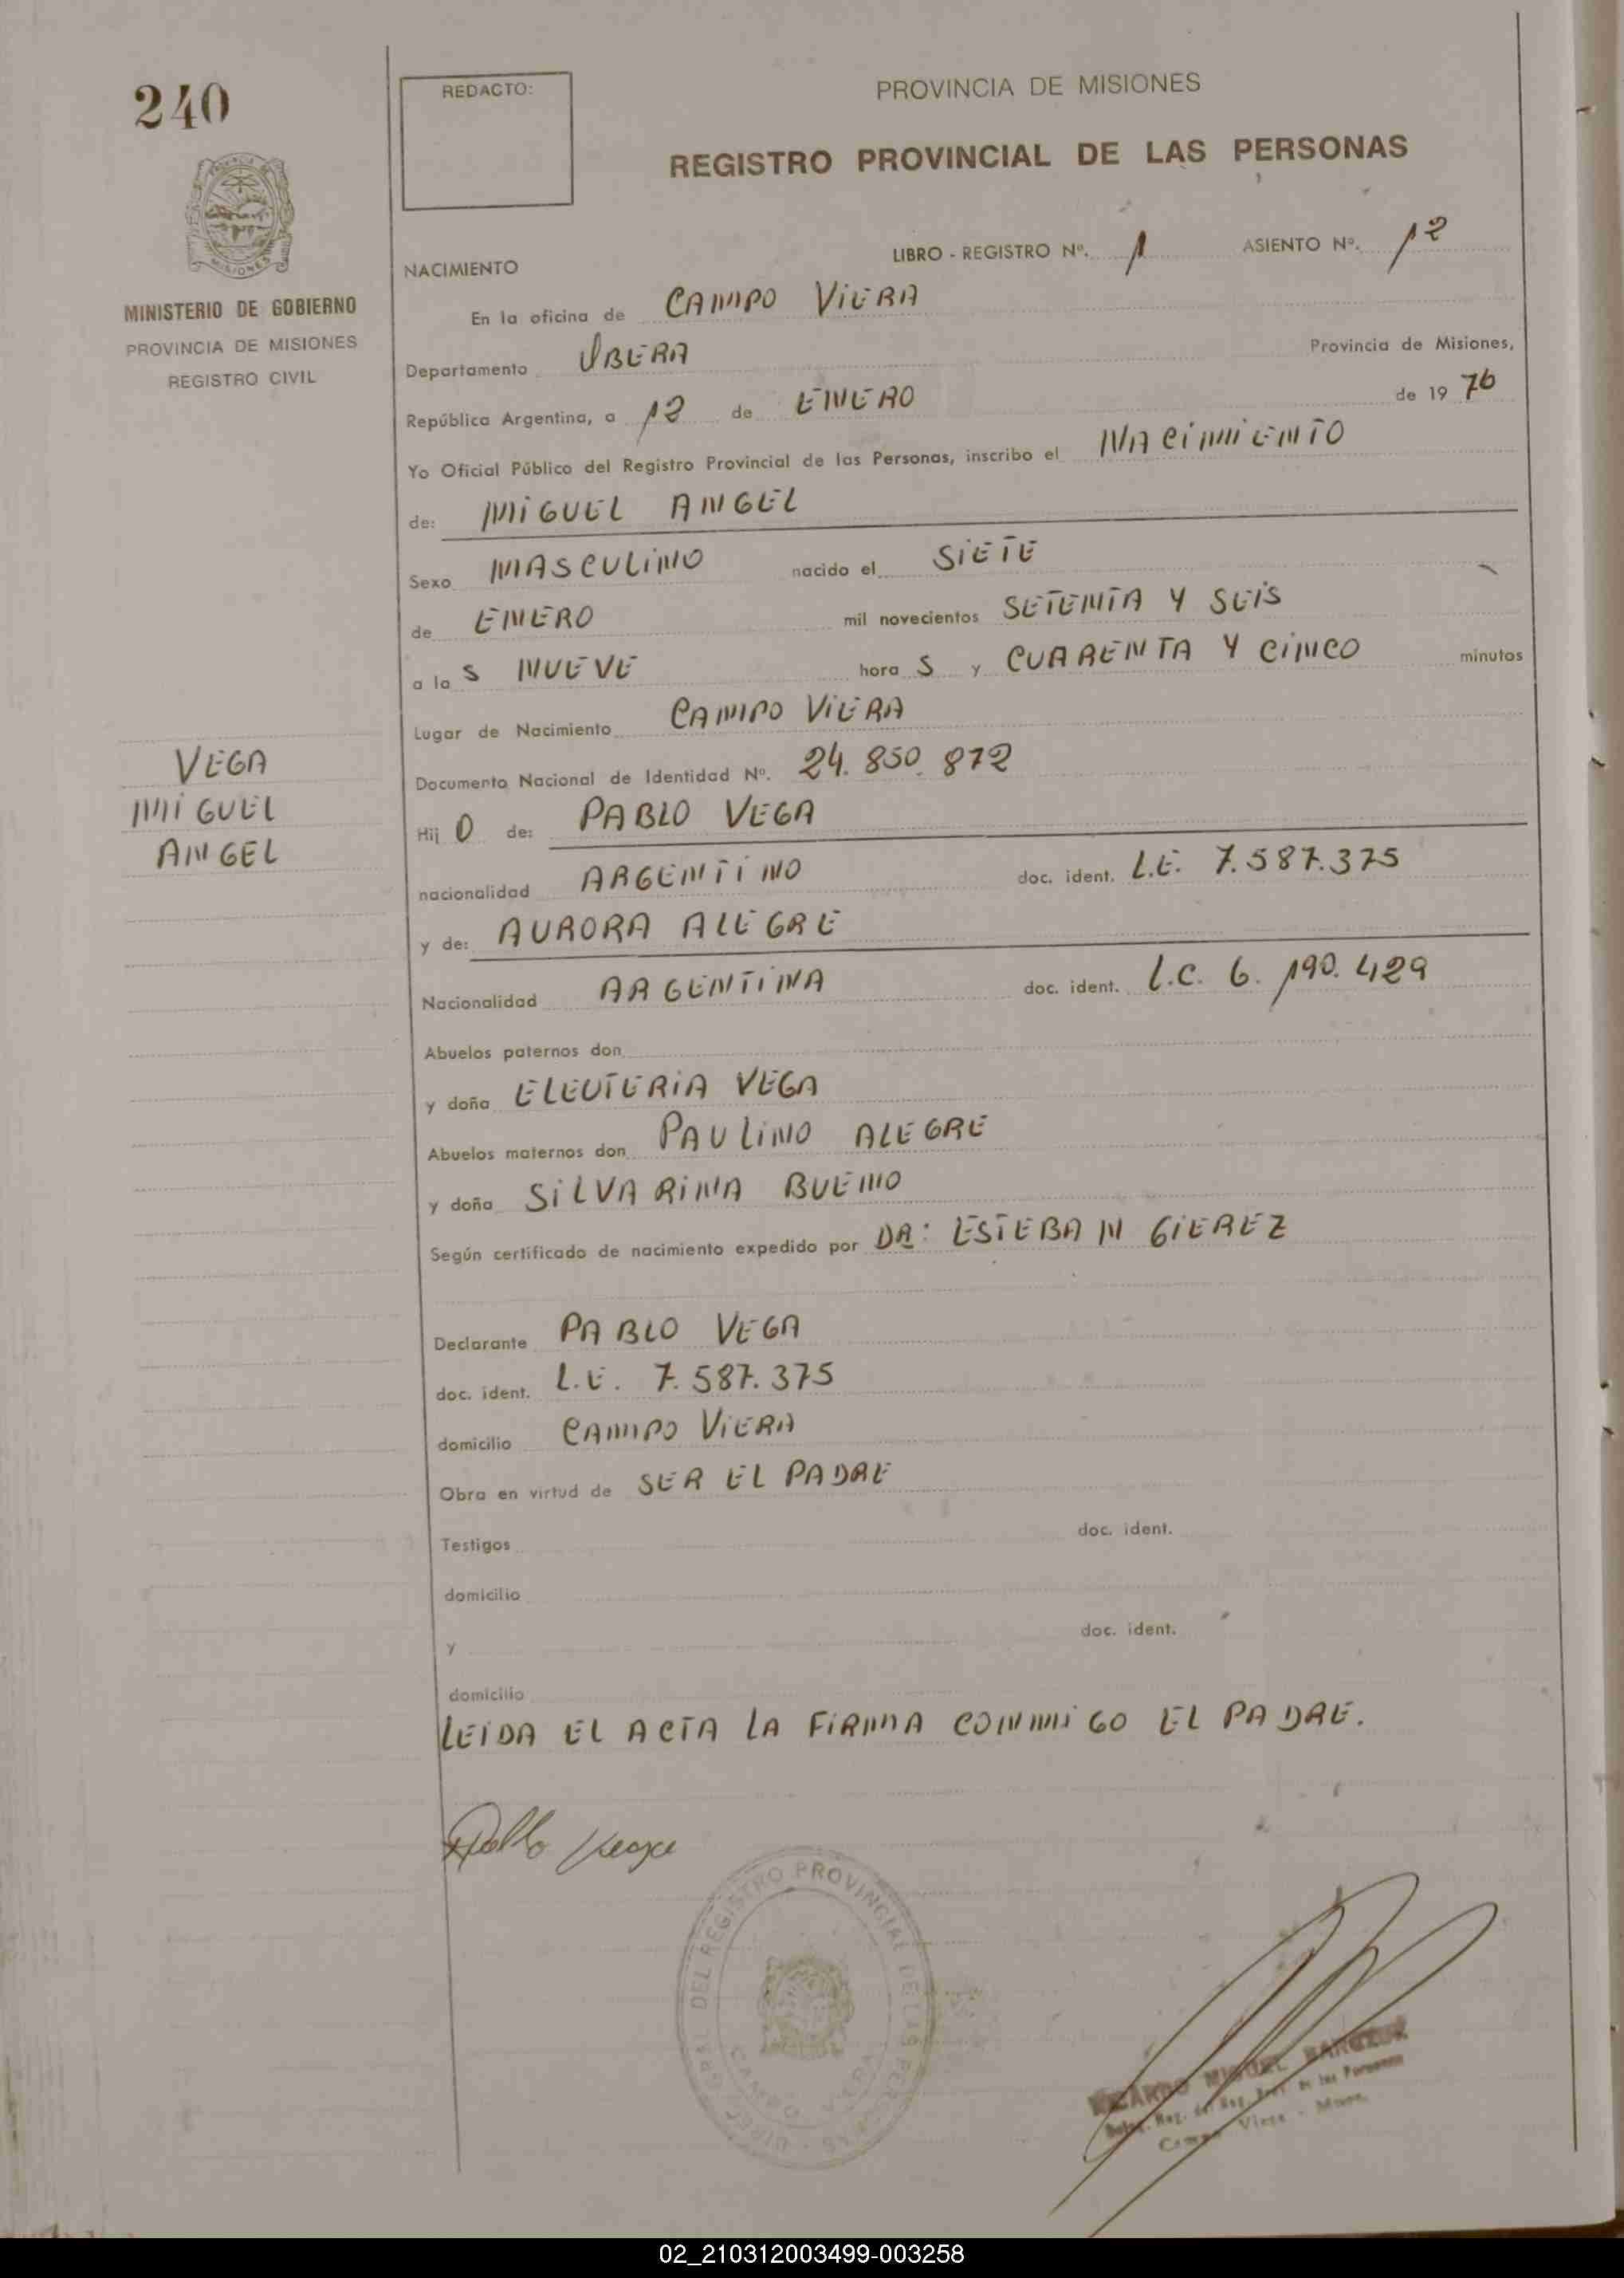 240
REDACTO:
PROVINCIA DE MISIONES
REGISTRO PROVINCIAL DE LAS PERSONAS
MISIONES
MINISTERIO DE GOBIERNO
PROVINCIA DE MISIONES
REGISTRO CIVIL
NACIMIENTO LIBRO - REGISTRO Nº. 1 ASIENTO Nº. 12
En la oficina de CAMPO VIERA
Departamento OBERA Provincia de Misiones,
República Argentina, a 12 de ENERO de 19 76
Yo Oficial Público del Registro Provincial de las Personas, inscribo el NACIMIENTO
de: MIGUEL ANGEL
Sexo MASCULINO nacido el SIETE
de ENERO mil novecientos SETENTA Y SEIS
a la S NUEVE hora S y CUARENTA Y CINCO minutos
Lugar de Nacimiento CAMPO VIERA
VEGA
MIGUEL
ANGEL
Documento Nacional de Identidad Nº. 24.850.872
Hij O de: PABLO VEGA
nacionalidad ARGENTINO doc. ident. L.E. 7.587.375
y de: AURORA ALEGRE
Nacionalidad ARGENTINA doc. ident. L.C. 6.190.429
Abuelos paternos don
y doña ELEUTERIA VEGA
Abuelos maternos don PAULINO ALEGRE
y doña SILVARINA BUENO
Según certificado de nacimiento expedido por DR: ESTEBAN GIEREZ
Declarante PABLO VEGA
doc. ident. L.E. 7.587.375
domicilio CAMPO VIERA
Obra en virtud de SER EL PADRE
Testigos doc. ident.
domicilio
y doc. ident.
domicilio
LEIDA EL ACTA LA FIRMA CONMIGO EL PADRE.
Pablo Vega
DEL REGISTRO PROVINCIAL DE LAS PERSONAS
CAMPO VIERA
MIGUEL
Campo Viera - Mnes.
02_210312003499-003258